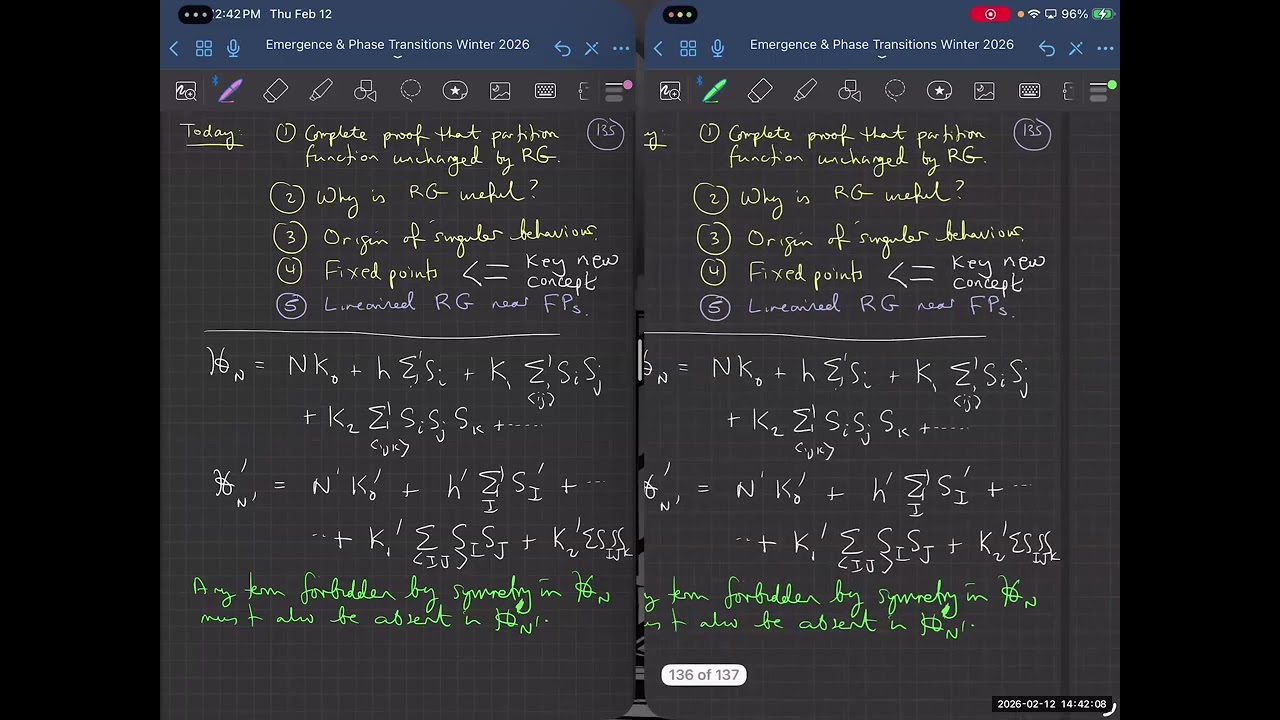 2:42 PM Thu Feb 12
Emergence & Phase Transitions Winter 2026
Today: ① Complete proof that partition 135
function unchanged by RG.
② Why is RG useful?
③ Origin of singular behaviour.
④ Fixed points <= Key new
concept
⑤ Linearised RG near FPs.
ℋ_N = N K₀ + h Σ' S_i + K₁ Σ' S_i S_j
<ij>
+ K₂ Σ' S_i S_j S_k + .....
<ijk>
ℋ'_N' = N' K₀' + h' Σ' S_I' + ...
I
.. + K₁' Σ S_I S_J + K₂' Σ S S S
<IJ> IJK
Any term forbidden by symmetry in ℋ_N
must also be absent in ℋ'_N'.
96%
Emergence & Phase Transitions Winter 2026
y: ① Complete proof that partition 135
function unchanged by RG.
② Why is RG useful?
③ Origin of singular behaviour.
④ Fixed points <= Key new
concept
⑤ Linearised RG near FPs.
ℋ_N = N K₀ + h Σ' S_i + K₁ Σ' S_i S_j
<ij>
+ K₂ Σ' S_i S_j S_k + .....
<ijk>
ℋ'_N' = N' K₀' + h' Σ' S_I' + ...
I
.. + K₁' Σ S_I S_J + K₂' Σ S S S
<IJ> IJK
y term forbidden by symmetry in ℋ_N
st also be absent in ℋ'_N'.
136 of 137
2026-02-12 14:42:08